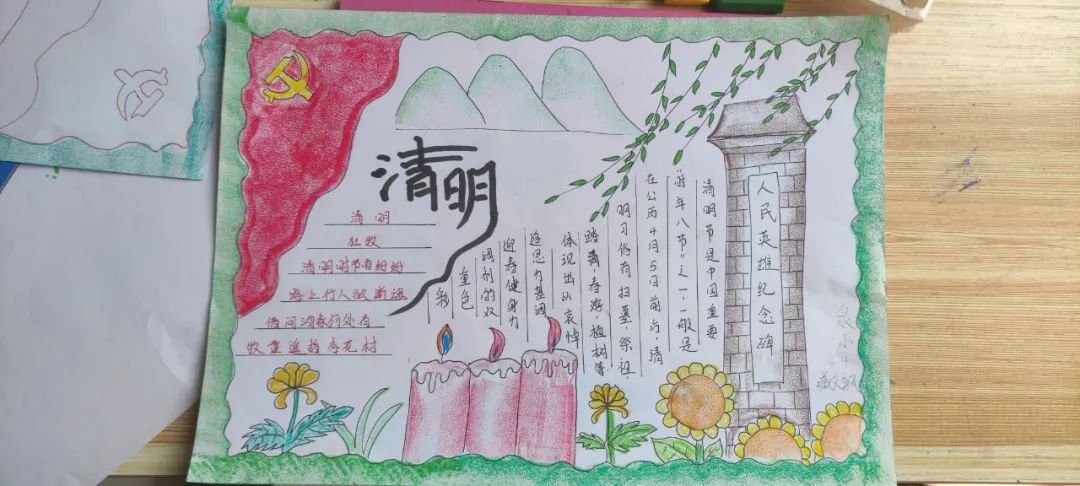 清明
清明
杜牧
清明时节雨纷纷
路上行人欲断魂
借问酒家何处有
牧童遥指杏花村
清明节是中国重要
“时年八节”之一,一般是
在公历4月5日前后,清
明习俗有扫墓,祭祖,
踏青,春游,植树等
体现出以哀悼
追思为基调
迎春健身为
调剂的双
重色
彩
人民英雄纪念碑
泉小